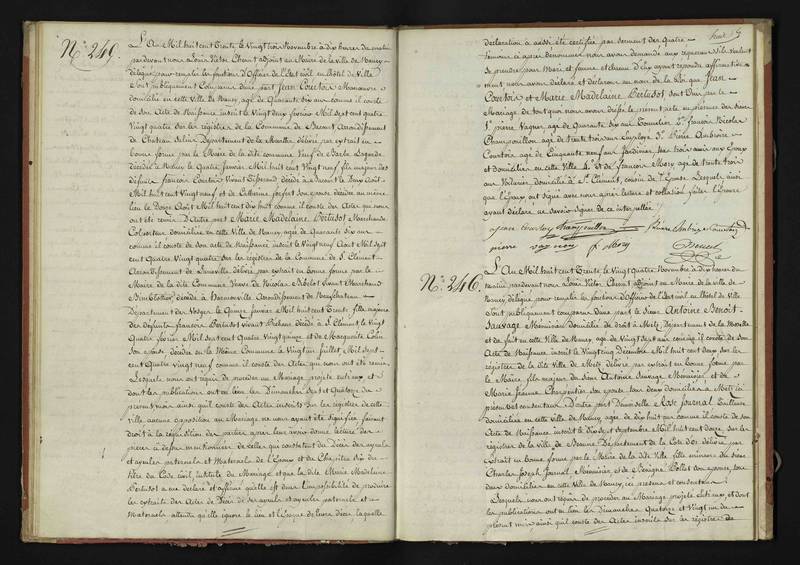 N.° 249.
L'An Mil huit cent Trente le Vingt trois Novembre à dix heures du matin
pardevant nous Louis Victor Chenut adjoint au Maire de la Ville de Nancy
délégué pour remplir les fonctions d'Officier de l'Etat civil en l'hôtel de Ville
Sont publiquement Comparus d'une part Jean Courtoix Manœuvre
domicilié en cette Ville de Nancy âgé de Quarante six ans comme il conste
de son Acte de Naissance inscrit le Vingt deux février Mil sept cent quatre
Vingt quatre sur les registres de la Commune de arrondissement
de Chateau Salins Département de la Meurthe délivré par extrait en
bonne forme par le Maire de la dite commune Veuf de Barbe
décédée à le Quatre Janvier Mil huit cent Vingt neuf fils majeur des
défunts françois Courtoix Vivant Tisserand décédé à le Deux Août
Mil huit cent Vingt neuf et de Catherine son épouse décédée au même
lieu le Douze Août Mil huit cent dix huit comme il conste des Actes qui nous
ont été remis D'autre part Marie Madelaine Bertusot Marchande
Colporteur domiciliée en cette Ville de Nancy, âgée de Quarante six ans
comme il conste de son acte de Naissance inscrit le Vingt neuf Août Mil sept
cent Quatre Vingt quatre sur les registres de la Commune de S.t Clément
Arrondissement de Lunéville délivré par extrait en bonne forme par le
Maire de la dite Commune Veuve de Nicolas Vivant Marchand
décédé à Arrondissement de Neufchateau
Département des Vosges le Janvier Mil huit cent Trente fille majeure
des défunts françois Bertusot vivant décédé à S.t Clément le Vingt
Quatre février Mil sept cent Quatre Vingt quinze et de Marguerite Colin
son épouse décédée en la Même Commune le Vingt un Juillet Mil sept
cent Quatre Vingt neuf comme il conste des Actes qui nous ont été remis
Lesquels nous ont requis de procéder au Mariage projeté entr'eux et
dont les publications ont eu lieu les Dimanches Sept et Quatorze du
présent mois ainsi qu'il conste des Actes inscrits sur les registres de cette
Ville aucune opposition au Mariage ne nous ayant été signifiée, faisant
droit à la réquisition des parties après leur avoir donné lecture des
pièces ci dessus mentionnées de celles qui constatent du Décès des ayeuls
et ayeules paternels et Maternels de l'Epoux et du Chapitre six du
titre du Code civil, intitulé du Mariage et que la dite Marie Madelaine
Bertusot a déclaré et affirmé qu'elle est dans l'impossibilité de produire
les extraits des Actes de Décès de ses ayeuls et ayeules paternels et
Maternels attendu qu'elle ignore le lieu et l'Epoque de leurs décès, laquelle
déclaration a aussi été certifiée par serment des quatre
témoins ci après dénommés nous avons demandé aux requérans s'ils veulent
se prendre pour Mari et femme et chacun d'eux ayant répondu affirmativement
nous avons déclaré et déclarons au nom de la Loi que Jean
Courtoix et Marie Madelaine Bertusot sont Unis par le
Mariage de tout quoi nous avons dressé le présent acte en présence des Sieurs
1.° pierre Vagner, âgé de Quarante six ans Tonnelier 2.° françois Nicolas
Champouillon âgé de trente trois ans Employé 3.° Pierre Ambroise
Courtoix âgé de Cinquante neuf ans Jardinier, tous trois amis des Epoux
et domiciliés en cette Ville 4.° et de françois Mory âgé de trente trois
ans Voiturier domicilié à S.t Clément, cousin de l'Epouse. Lesquels ainsi
que l'Epoux ont signé avec nous après lecture et collation faites l'Epouse
ayant déclaré ne savoir signer de ce interpellée
Jean Courtoy Champouillon
pierre vagner f. Mory Chenut
N.° 246.
L'An Mil huit cent Trente le Vingt quatre Novembre à dix heures du
matin pardevant nous Louis Victor Chenut adjoint au Maire de la Ville de
Nancy délégué pour remplir les fonctions d'Officier de l'Etat civil en l'hôtel de Ville
Sont publiquement comparus d'une part le Sieur Antoine Benoit
Sauvage Menuisier Domicilié de droit à Metz, Département de la Moselle
et de fait en cette Ville de Nancy, âgé de Vingt sept ans comme il conste de son
Acte de Naissance inscrit le Vingt cinq Décembre Mil huit cent deux sur les
registres de la dite Ville de Metz délivré par extrait en bonne forme par
le Maire, fils majeur du Sieur Antoine Sauvage Menuisier et de
Marie Jeanne Charpentier son épouse tous deux domiciliés à Metz ici
présens et consentans D'autre part Demoiselle Rose Journal Couturière
domiciliée en cette Ville de Nancy, âgée de dix huit ans comme il conste de son
Acte de Naissance inscrit le Dix sept Septembre Mil huit cent douze sur les
registres de la Ville de Beaune Département de la Côte d'or délivré par
extrait en bonne forme par le Maire de la dite Ville fille mineure du Sieur
Charles Joseph Journal, Menuisier, et de Pollet son épouse tous
deux domiciliés en cette Ville de Nancy, ici présens et consentans
Lesquels nous ont requis de procéder au Mariage projeté entr'eux, et dont
les publications ont eu lieu les Dimanches Quatorze et Vingt un du
présent mois ainsi qu'il conste des Actes inscrits sur les registres de